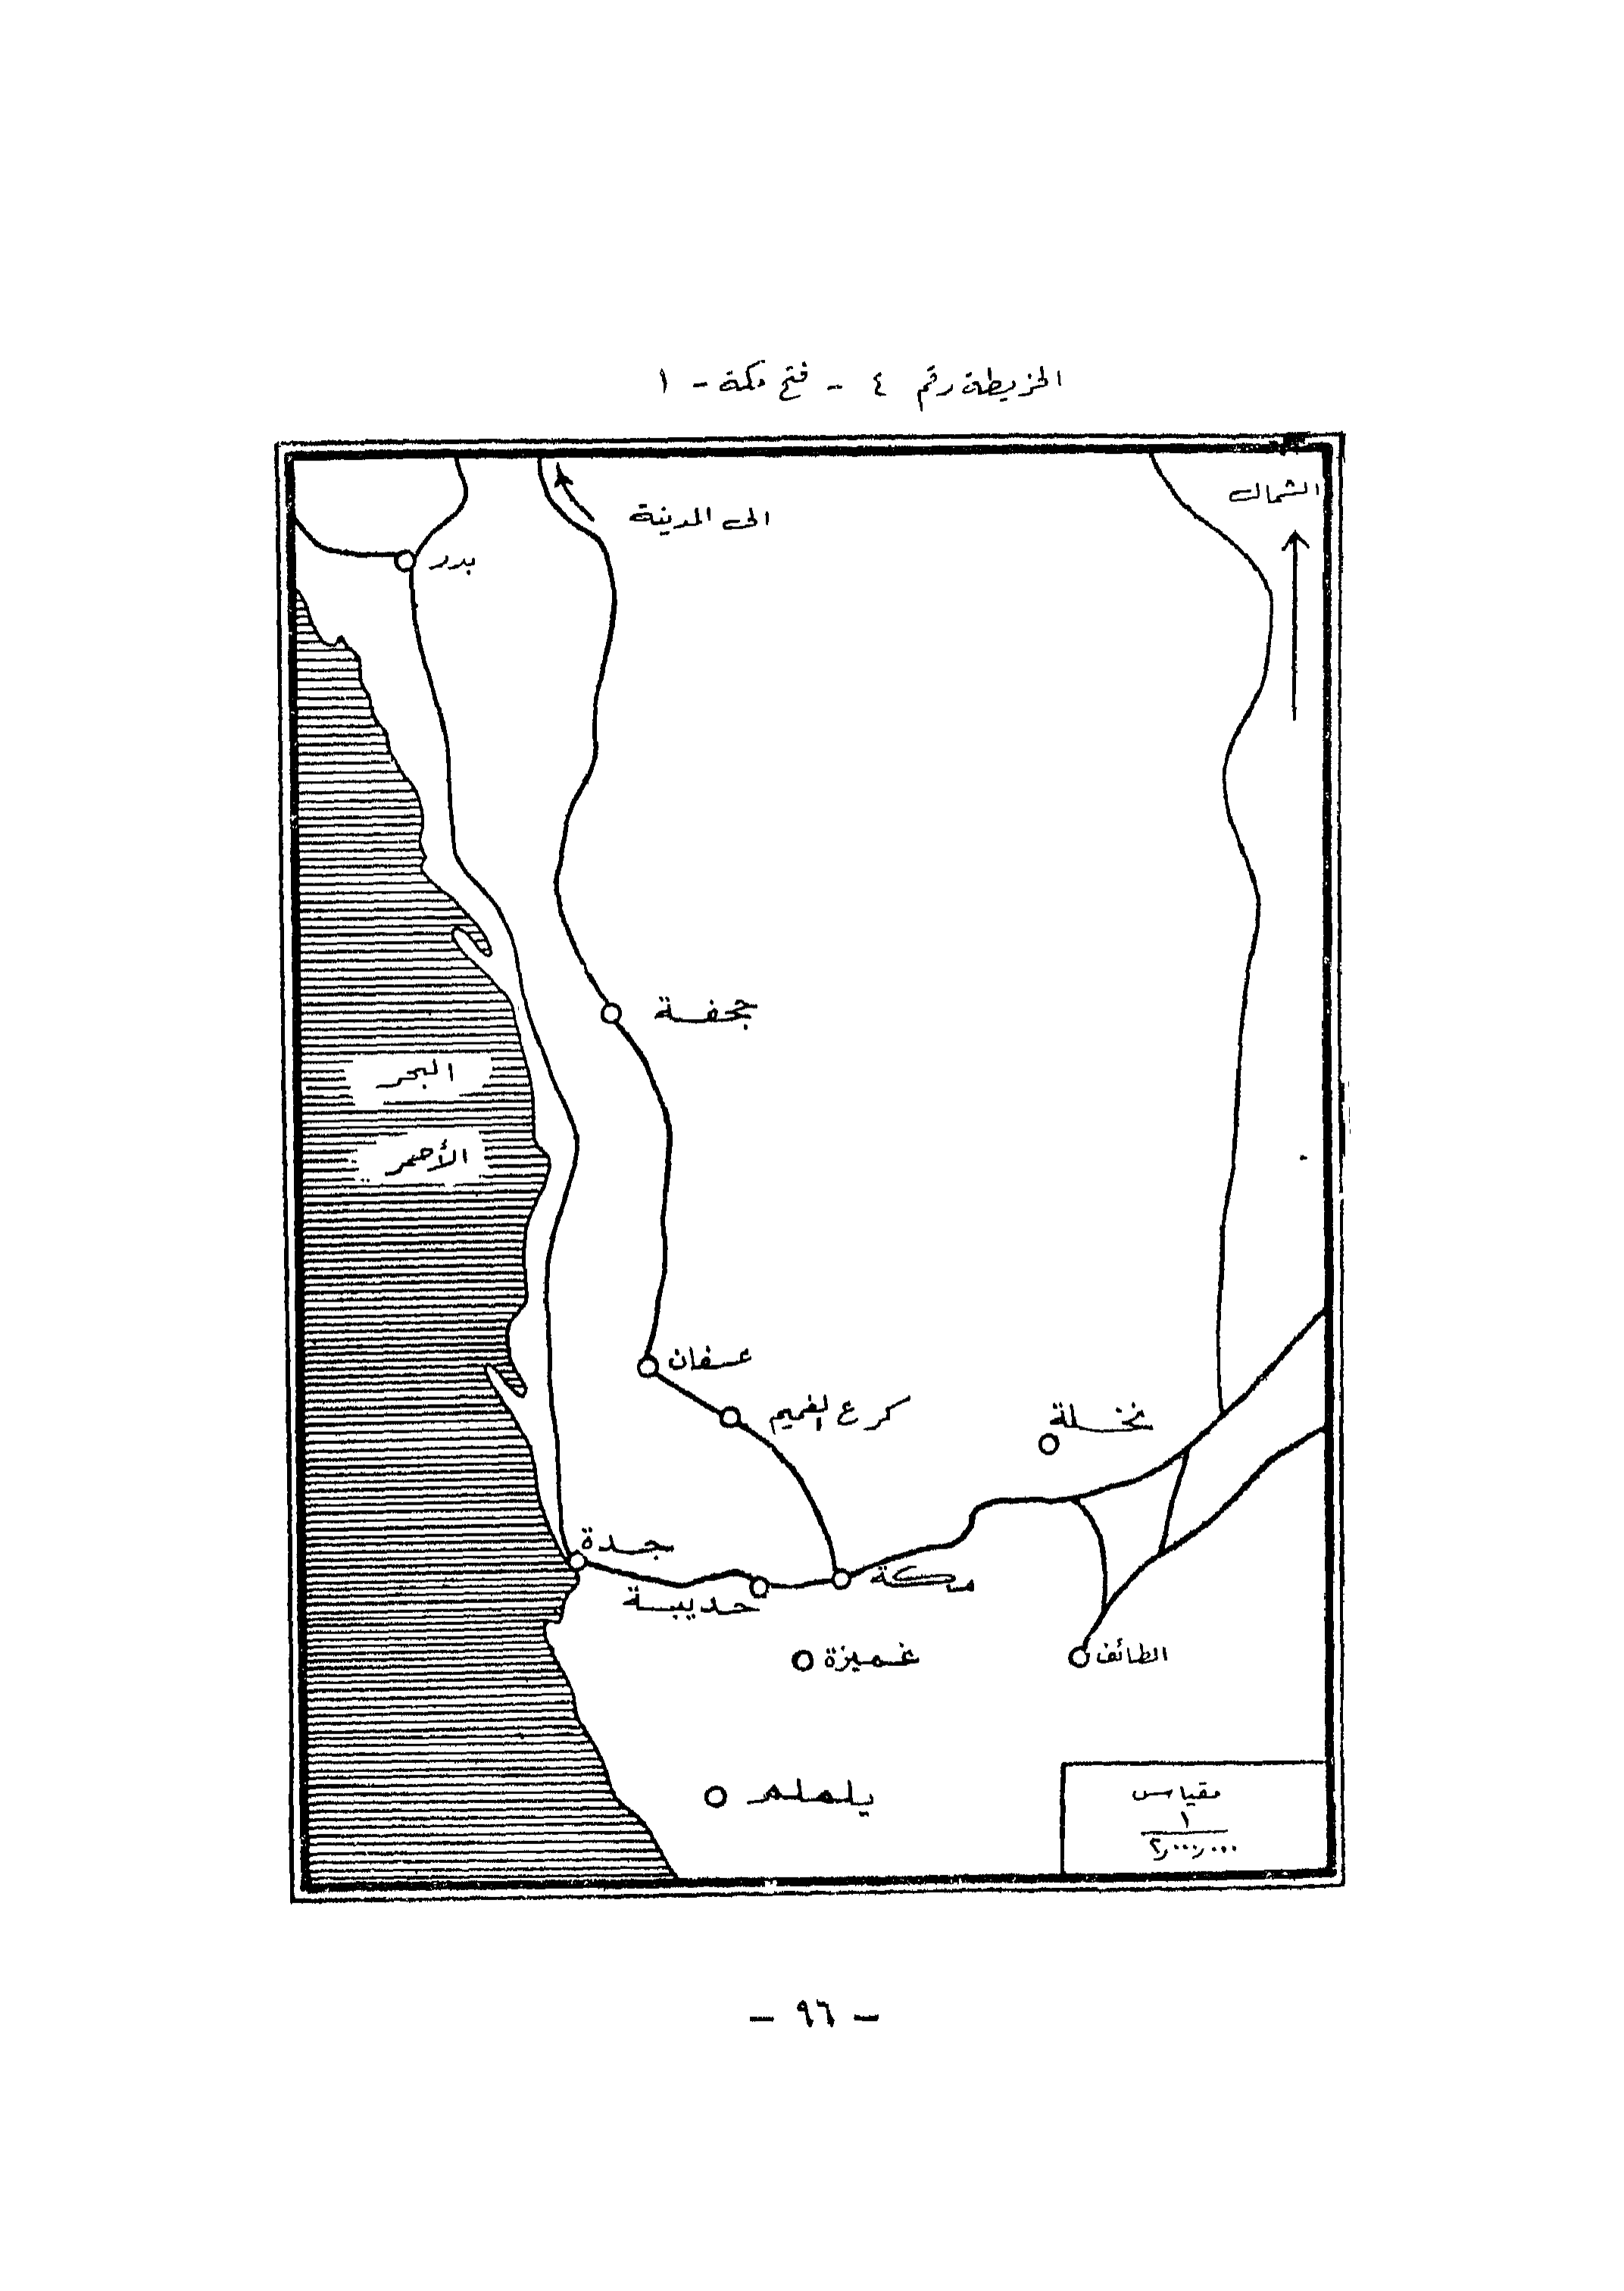 الخريطة رقم ٤ - فتح مكة - ١
الشمال
الى المدينة
بدر
جحفة
البحر
الأحمر
عسفان
كرع الغميم
نخلة
جدة
حديبية
مكة
غميزة
الطائف
يلملم
مقياس
١
٢٫٠٠٠٫٠٠٠
- ٩٦ -